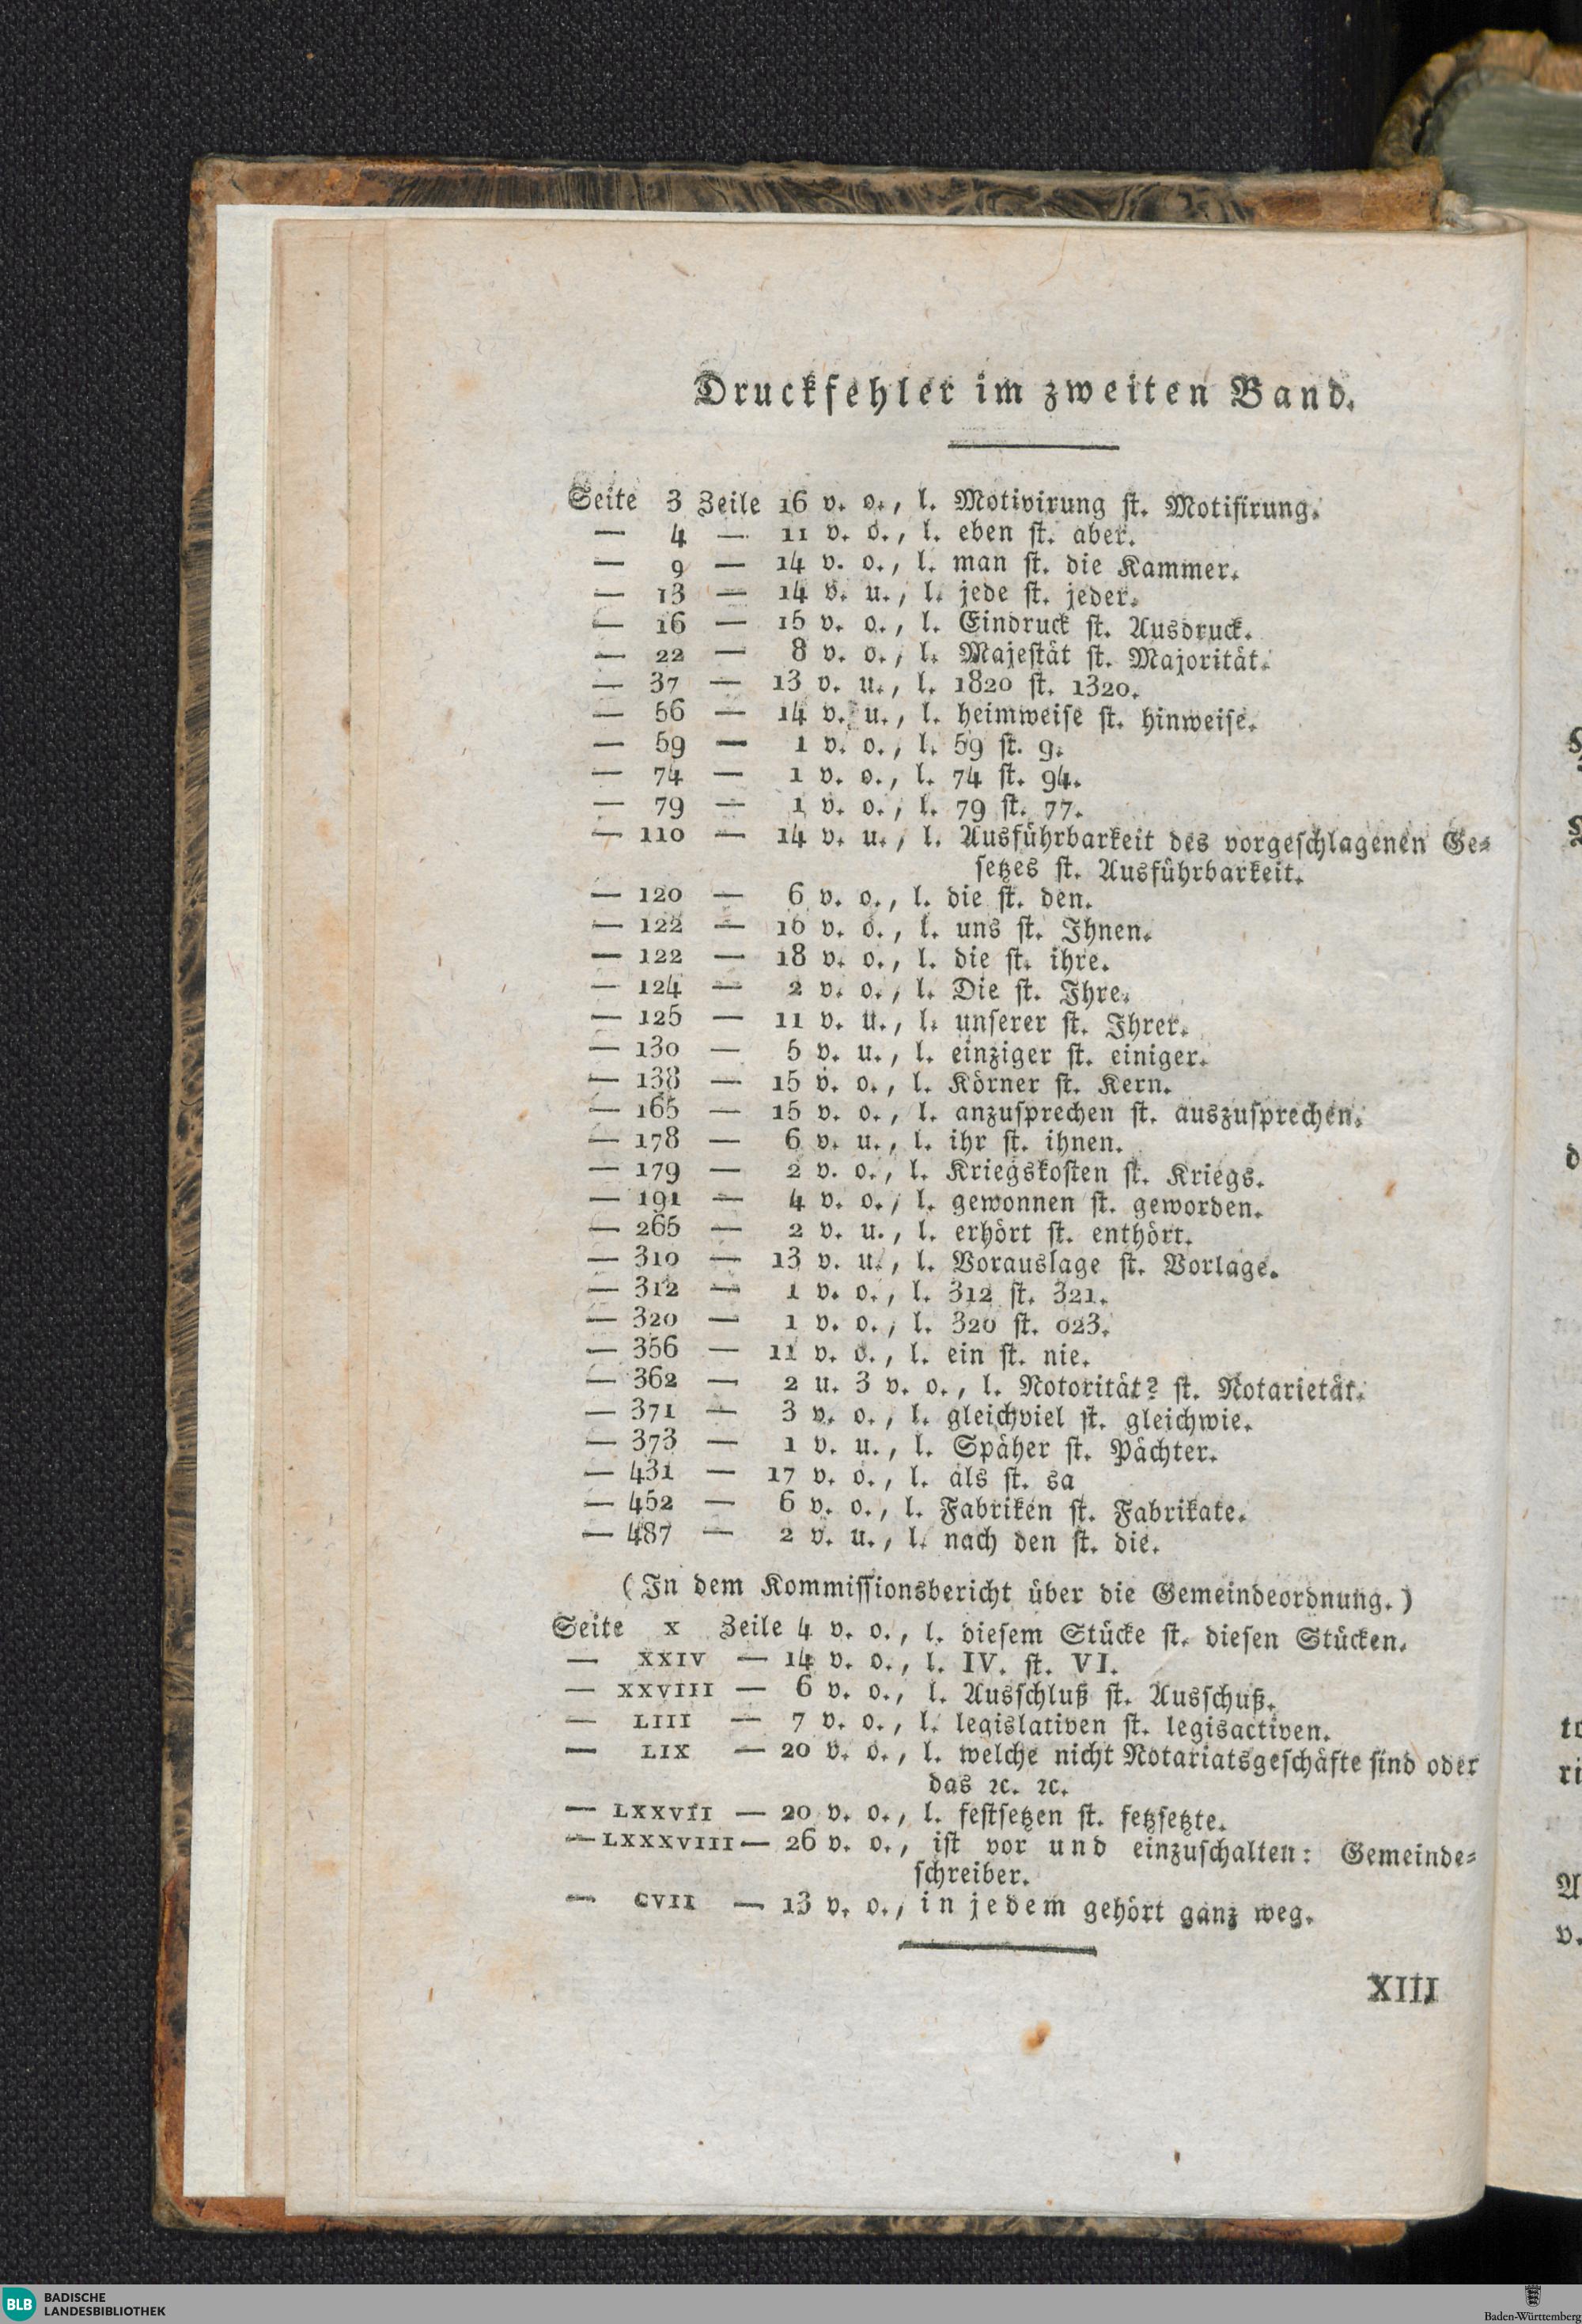 Druckfehler im zweiten Band.
Seite 3 Zeile 16 v. o., l. Motivirung st. Motifirung.
— 4 — 11 v. o., l. eben st. aber.
— 9 — 14 v. o., l. man st. die Kammer.
— 13 — 14 v. u., l. jede st. jeder.
— 16 — 15 v. o., l. Eindruck st. Ausdruck.
— 22 — 8 v. o., l. Majestät st. Majorität.
— 37 — 13 v. u., l. 1820 st. 1320.
— 56 — 14 v. u., l. heimweise st. hinweise.
— 59 — 1 v. o., l. 59 st. 9.
— 74 — 1 v. o., l. 74 st. 94.
— 79 — 1 v. o., l. 79 st. 77.
— 110 — 14 v. u., l. Ausführbarkeit des vorgeschlagenen Ge-
setzes st. Ausführbarkeit.
— 120 — 6 v. o., l. die st. den.
— 122 — 16 v. o., l. uns st. Ihnen.
— 122 — 18 v. o., l. die st. ihre.
— 124 — 2 v. o., l. Die st. Ihre.
— 125 — 11 v. u., l. unserer st. Ihrer.
— 130 — 5 v. u., l. einziger st. einiger.
— 138 — 15 v. o., l. Körner st. Kern.
— 165 — 15 v. o., l. anzusprechen st. auszusprechen.
— 178 — 6 v. u., l. ihr st. ihnen.
— 179 — 2 v. o., l. Kriegskosten st. Kriegs.
— 191 — 4 v. o., l. gewonnen st. geworden.
— 265 — 2 v. u., l. erhört st. enthört.
— 310 — 13 v. u., l. Vorauslage st. Vorlage.
— 312 — 1 v. o., l. 312 st. 321.
— 320 — 1 v. o., l. 320 st. 023.
— 356 — 11 v. o., l. ein st. nie.
— 362 — 2 u. 3 v. o., l. Notorität? st. Notarietät.
— 371 — 3 v. o., l. gleichviel st. gleichwie.
— 373 — 1 v. u., l. Späher st. Pächter.
— 431 — 17 v. o., l. als st. sa
— 452 — 6 v. o., l. Fabriken st. Fabrikate.
— 487 — 2 v. u., l. nach den st. die.
(In dem Kommissionsbericht über die Gemeindeordnung.)
Seite X Zeile 4 v. o., l. diesem Stücke st. diesen Stücken.
— XXIV — 14 v. o., l. IV. st. VI.
— XXVIII — 6 v. o., l. Ausschluß st. Ausschuß.
— LIII — 7 v. o., l. legislativen st. legisactiven.
— LIX — 20 v. o., l. welche nicht Notariatsgeschäfte sind oder
das ꝛc. ꝛc.
— LXXVII — 20 v. o., l. festsetzen st. fetzsetzte.
— LXXXVIII — 26 v. o., ist vor und einzuschalten: Gemeinde-
schreiber.
— CVII — 13 v. o., in jedem gehört ganz weg.
XIII
BLB BADISCHE
LANDESBIBLIOTHEK
Baden-Württemberg